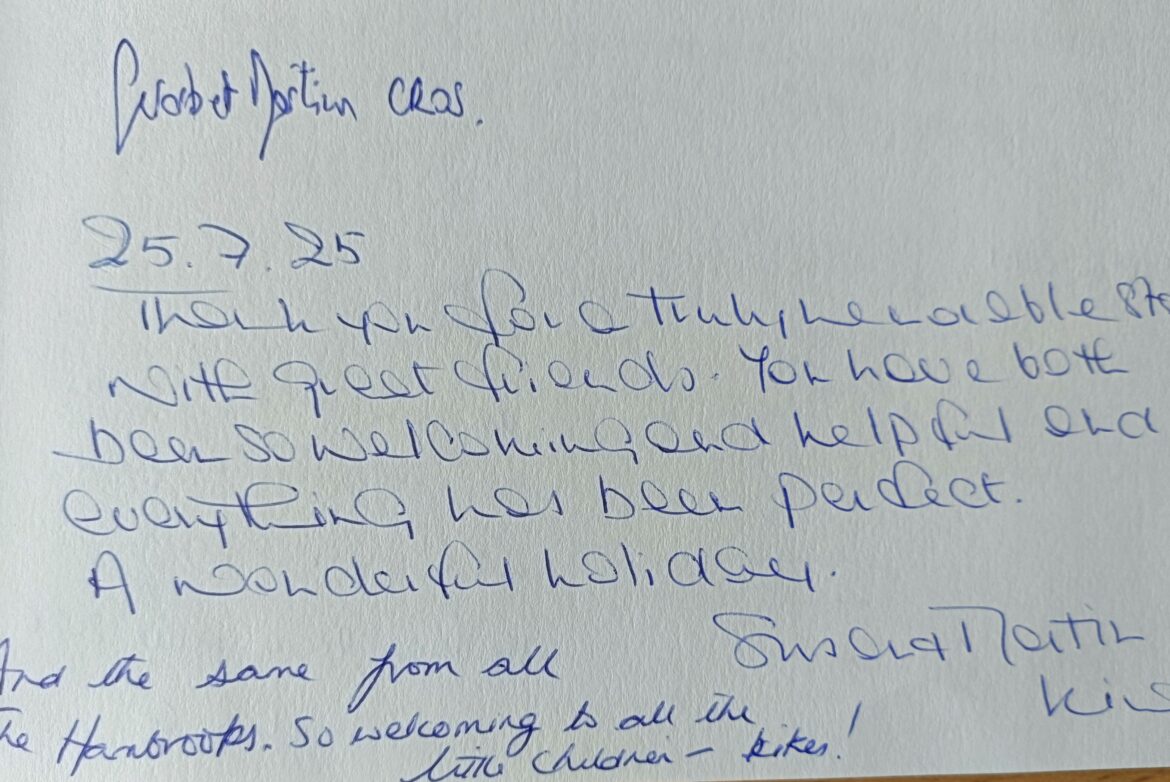 Martin CROS.
25.7.25
Thank you for a truly memorable sta
with great friends. You have both
been so welcoming and helpful and
everything has been perfect.
A wonderful holiday.
Susan & Martin
And the same from all
The Hambrooks. So welcoming to all the
little children -